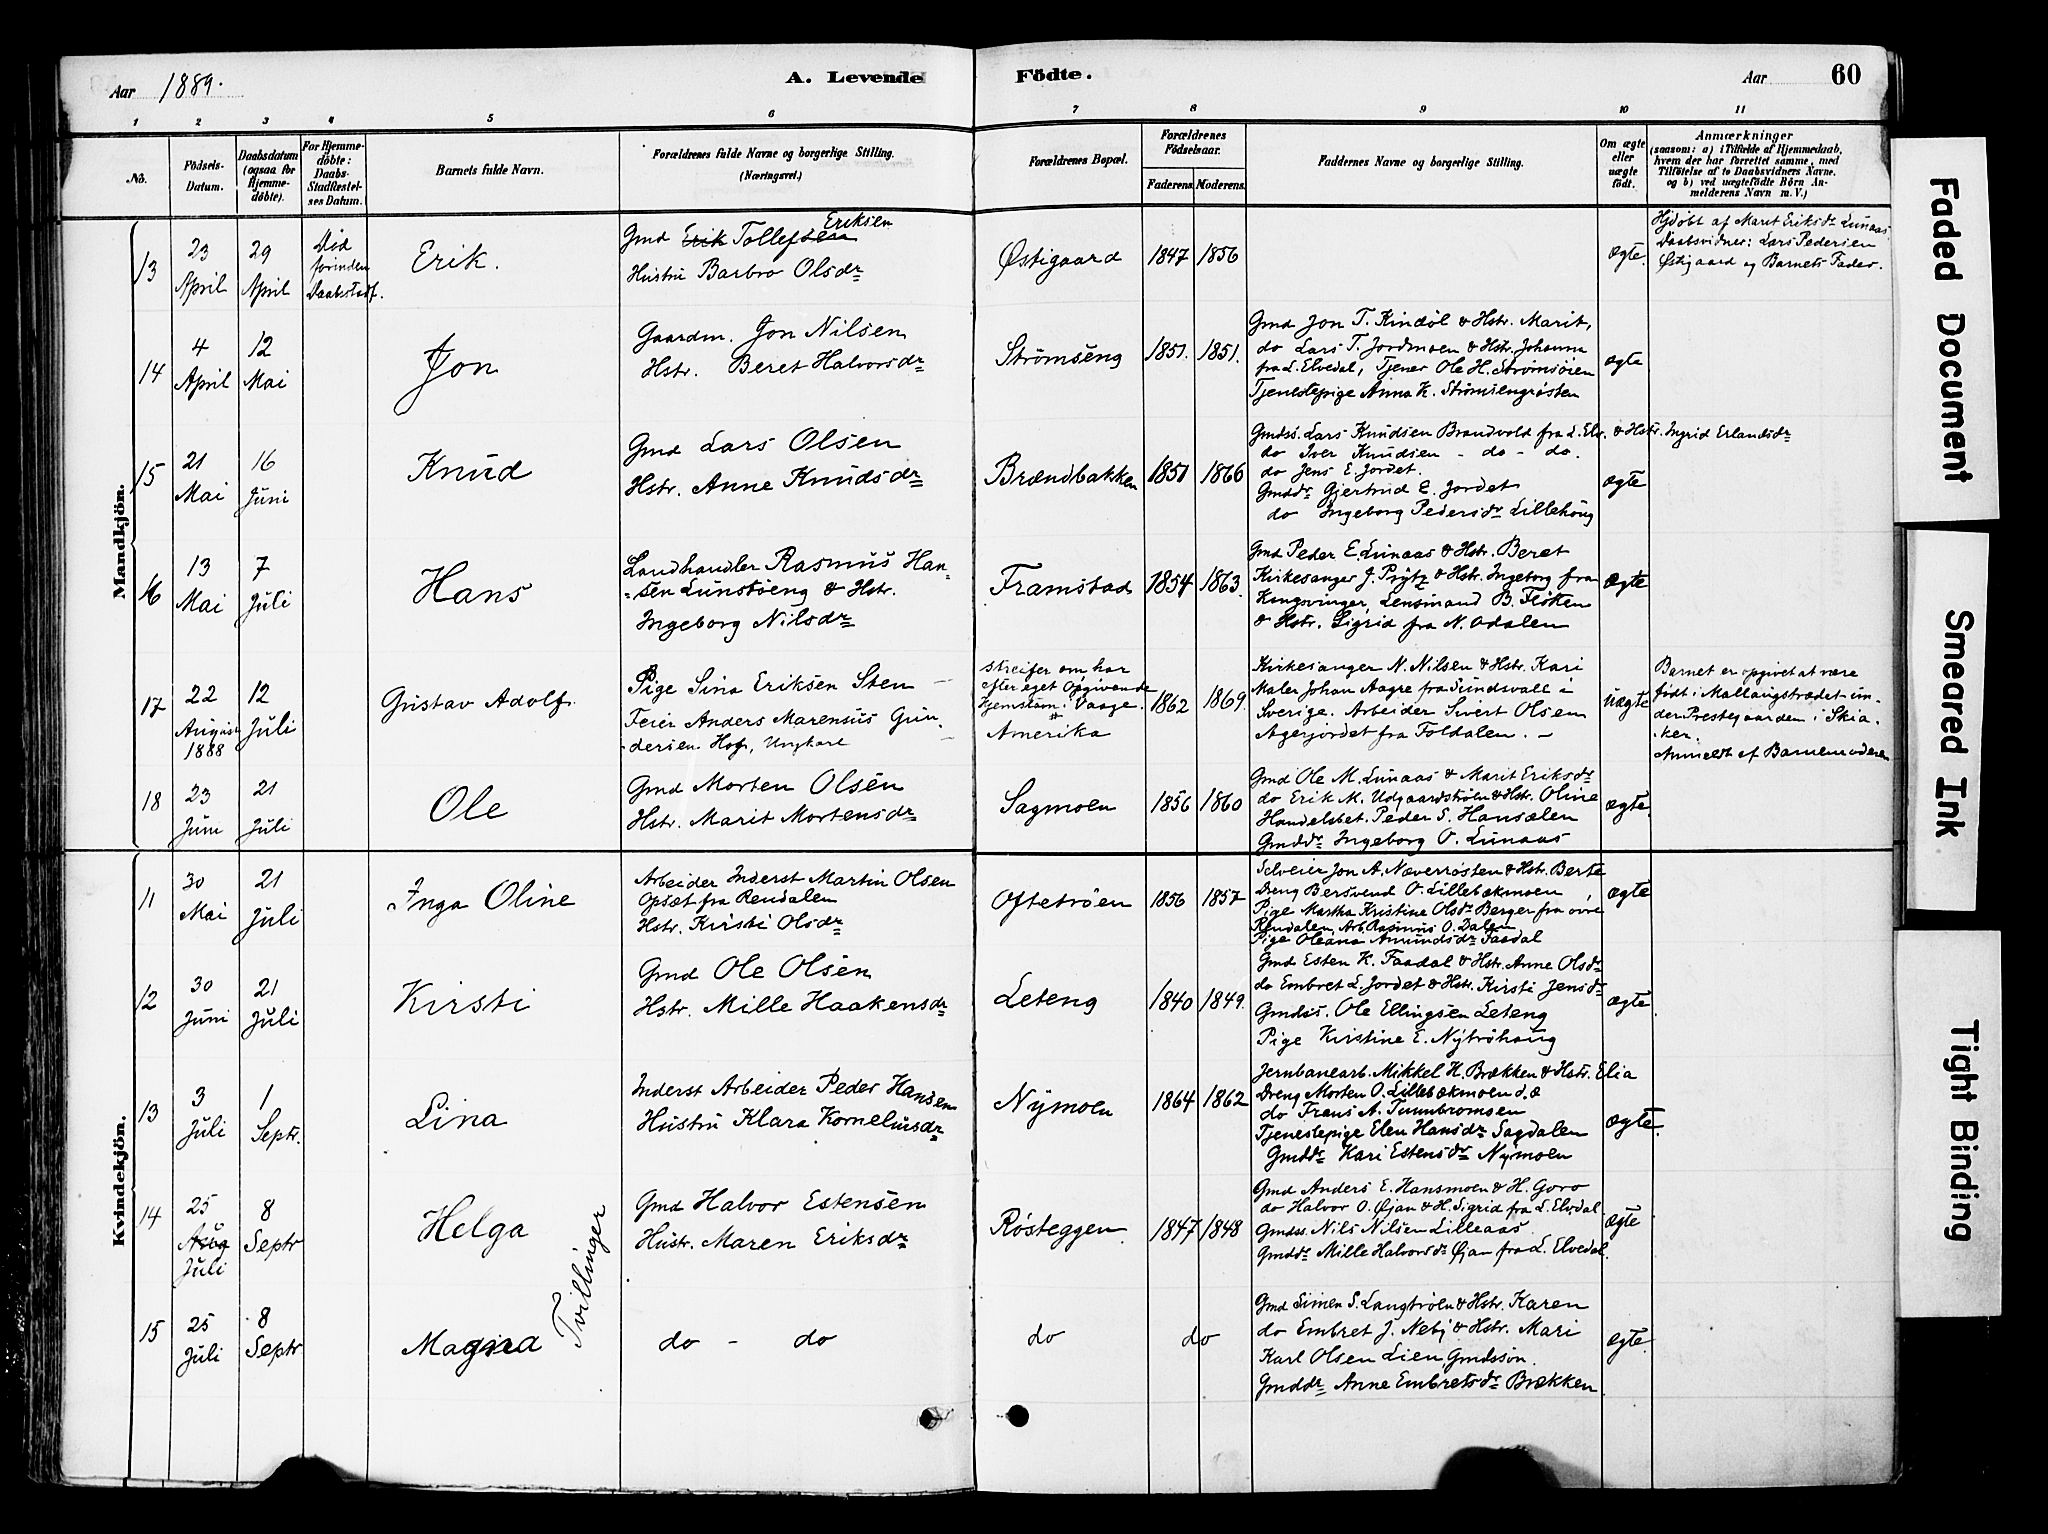 Aar 1889. A. Levende Födte. Aar 60
1 2 3 4 5 6 7 8 9 10 11
No. Födsels-Datum. Daabsdatum (ogsaa for Hjemme-döbte). For Hjemme-döbte: Daabs-Stadfæstel-ses Datum. Barnets fulde Navn. Forældrenes fulde Navne og borgerlige Stilling. (Næringsvei.) Forældrenes Bopæl. Forældrenes Födselsaar. Faderens. Moderens. Faddernes Navne og borgerlige Stilling. Om ægte eller uægte födt. Anmærkninger (saasom: a) i Tilfælde af Hjemmedaab, hvem der har forrettet samme, med Tilföielse af to Daabsvidners Navne, og b) ved uægtefödte Börn An-melderens Navn m. V.)
Mandkjön.
13 23 April 29 April Död forinden Daabstadf. Erik.
Gmd Erik Tollefsen Eriksen
Hustru Barbro Olsdr
Østigaard 1847 1856 ægte.
Hjdøbt af Marit Eriksdr Lunaas
Daabsvidner: Lars Pedersen
Østigaard og Barnets Fader.
14 4 April 12 Mai Jon
Gaardm. Jon Nilsen
Hstr. Beret Halvorsdr
Strømseng 1851. 1851.
Gmd Jon T. Kindöl & Hstr. Marit,
do Lars T. Jordmoen & Hstr. Johanna
fra L. Elvedal, Tjener Ole H. Strömsöien
Tjenestepige Anna K. Strömsengrösten
ægte
15 21 Mai 16 Juni Knud
Gmd Lars Olsen
Hstr. Anne Knudsdr
Brændbakken 1851 1866
Gmdss. Lars Knudsen Brandvold fra L. Elv. & Hstr. Ingrid Erlandsdr
do Iver Knudsen - do - do.
do Jens E. Jordet.
Gmddr Gjertrud E. Jordet
do Ingeborg Pedersdr Lillehöug
ægte
16 13 Mai 7 Juli Hans
Landhandler Rasmus Han-
sen Lunstöeng & Hstr.
Ingeborg Nilsdr
Framstad 1854 1863.
Gmd Peder E. Lunaas & Hstr. Beret
Kirkesanger J. Prÿtz & Hstr. Ingeborg fra
Kongsvinger, Lensmand B. Flöten
& Hstr. Sigrid fra N. Odalen
ægte
17 22 August 1888 12 Juli Gustav Adolf.
Pige Sina Eriksen Sten -
Feier Anders Marensus Gun-
dersen Hof, Ungkarl
streifer om har
efter eget Opgivende
Hjemstavn i Vaage.
Amerika
1862 1869.
Kirkesanger N. Nilsen & Hstr. Kari
Maler Johan Aagre fra Sundsvall i
Sverige. Arbeider Sivert Olsen
Agerjordet fra Foldalen. -
uægte
Barnet er opgivet at være
født i Mallangstrædet un-
der Prestegaarden i Skia-
ker.
Anmeldt af Barnemoderen
18 23 Juni 21 Juli Ole
Gmd Morten Olsen
Hstr. Marit Mortensdr
Sagmoen 1856 1860
Gmd Ole M. Lunaas & Marit Eriksdr
do Erik M. Udgaardströen & Hstr. Oline
Handelsbet. Peder S. Hansælen
Gmddr Ingeborg O. Lunaas
ægte.
Kvindekjön.
11 30 Mai 21 Juli Inga Oline
Arbeider Inderst Martin Olsen
Opsæt fra Rendalen
Hstr. Kirsti Olsdr
Oftetröen 1856 1857
Selveier Jon A. Næverrösten & Hstr. Berte
Dreng Bersvend O. Lillebækmoen
Pige Martha Kristine Olsdr Berger fra övre
Rendalen, Arb. Rasmus O. Dalen
Pige Oleana Amundsdr Faadal
ægte
12 30 Juni 21 Juli Kirsti
Gmd Ole Olsen
Hstr. Mille Haakensdr
Leteng 1840 1849.
Gmd Esten K. Faadal & Hstr. Anne Olsdr
do Embret L. Jordet & Hstr. Kirsti Jensdr
Gmdss. Ole Ellingsen Leteng
Pige Kirstine E. Nytröhaug
ægte.
13 3 Juli 1 Septr. Lina
Inderst Arbeider Peder Hansen
Hustru Klara Korneliusdr
Nÿmoen 1864 1862
Jernbanearb. Mikkel H. Brækken & Hstr. Elia
Dreng Morten O. Lillebækmoen d.æ
do Frans A. Tunnbromoen
Tjenestepige Elen Hansdr Sagdalen
Gmddr Kari Estensdr Nÿmoen
ægte.
14 25 Aug Juli 8 Septr Helga
Gmd Halvor Estensen
Hustr. Maren Eriksdr
Rösteggen 1847 1848
Gmd Anders E. Hansmoen & H. Goro
do Halvor O. Øjan & H. Sigrid fra L. Elvdal
Gmdss Nils Nilsen Lilleaas
Gmddr Mille Halvorsdr Øjan fra L. Elvedal.
ægte
Tvillinger
15 25 Juli 8 Septr Magna
do - do do do
Gmd Simen S. Langtröen & Hstr. Karen
do Embret J. Nebÿ & Hstr. Mari
Karl Olsen Lien Gmdssön.
Gmddr Anne Embretsdr Brækken
ægte.
Faded Document
Smeared Ink
Tight Binding